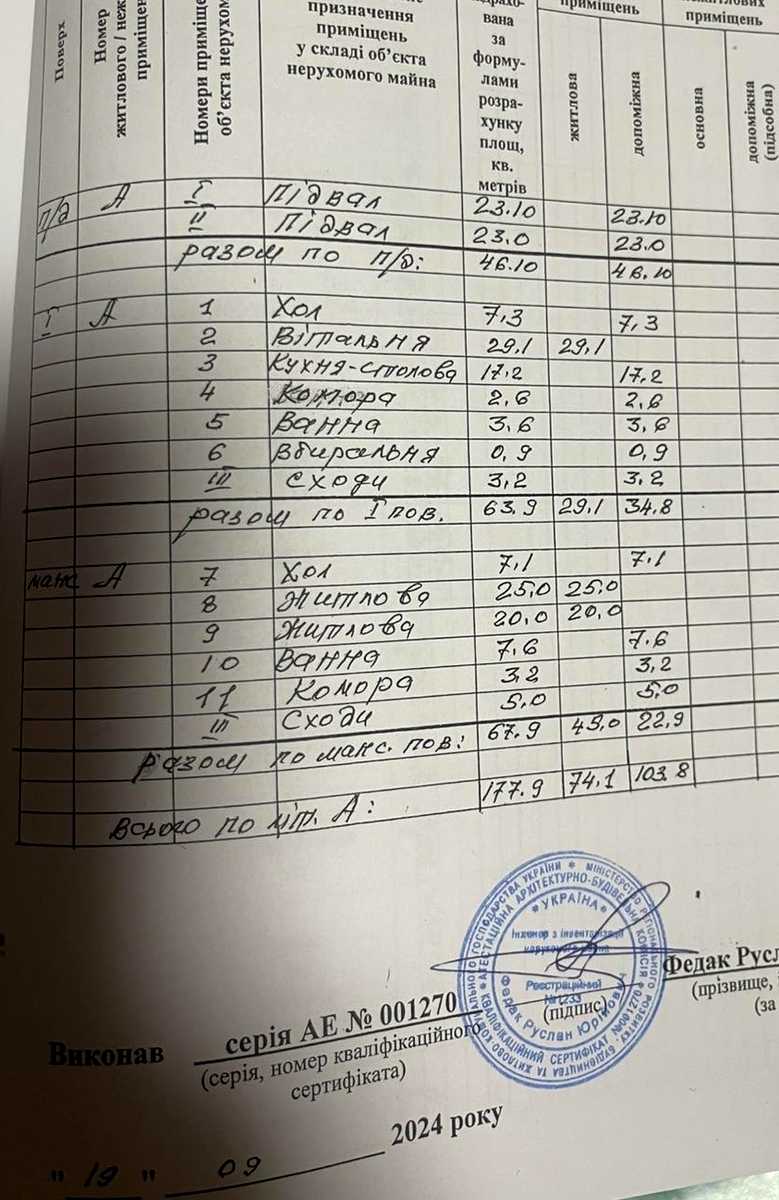 Поверх
Номер
житлового / неж
приміщен
Номери приміще
об'єкта нерухом
призначення
приміщень
у складі об'єкта
нерухомого майна
вана
за
форму-
лами
розра-
хунку
площ,
кв.
метрів
приміщень
житлова
допоміжна
приміщень
основна
допоміжна
(підсобна)
п/д А I підвал 23.10 23.10
II підвал 23.0 23.0
разом по п/д: 46.10 46.10
I А 1 Хол 7,3 7,3
2 Вітальня 29,1 29,1
3 Кухня-столова 17,2 17.2
4 Комора 2,6 2,6
5 Ванна 3,6 3,6
6 Вбиральня 0,9 0,9
III сходи 3,2 3,2
разом по I пов. 63,9 29,1 34,8
манс А 7 Хол 7,1 7,1
8 житлова 25,0 25,0
9 житлова 20,0 20,0
10 Ванна 7,6 7.6
11 Комора 3,2 3,2
III Сходи 5,0 5,0
разом по манс. пов: 67.9 45,0 22,9
Всього по літ. А: 177.9 74,1 103.8
Виконав
серія АЕ № 001270
(серія, номер кваліфікаційного
сертифіката)
(підпис)
Федак Русл
(прізвище,
(за
УКРАЇНА
Інженер з інвентаризації
нерухомого майна
Реєстраційний
№1233
Федак Руслан Юрійович
АТЕСТАЦІЙНА АРХІТЕКТУРНО-БУДІВЕЛЬНА КОМІСІЯ
КВАЛІФІКАЦІЙНИЙ СЕРТИФІКАТ №001270
МІНІСТЕРСТВО РЕГІОНАЛЬНОГО РОЗВИТКУ, БУДІВНИЦТВА ТА ЖИТЛОВО-КОМУНАЛЬНОГО ГОСПОДАРСТВА УКРАЇНИ
" 19 " 09 2024 року